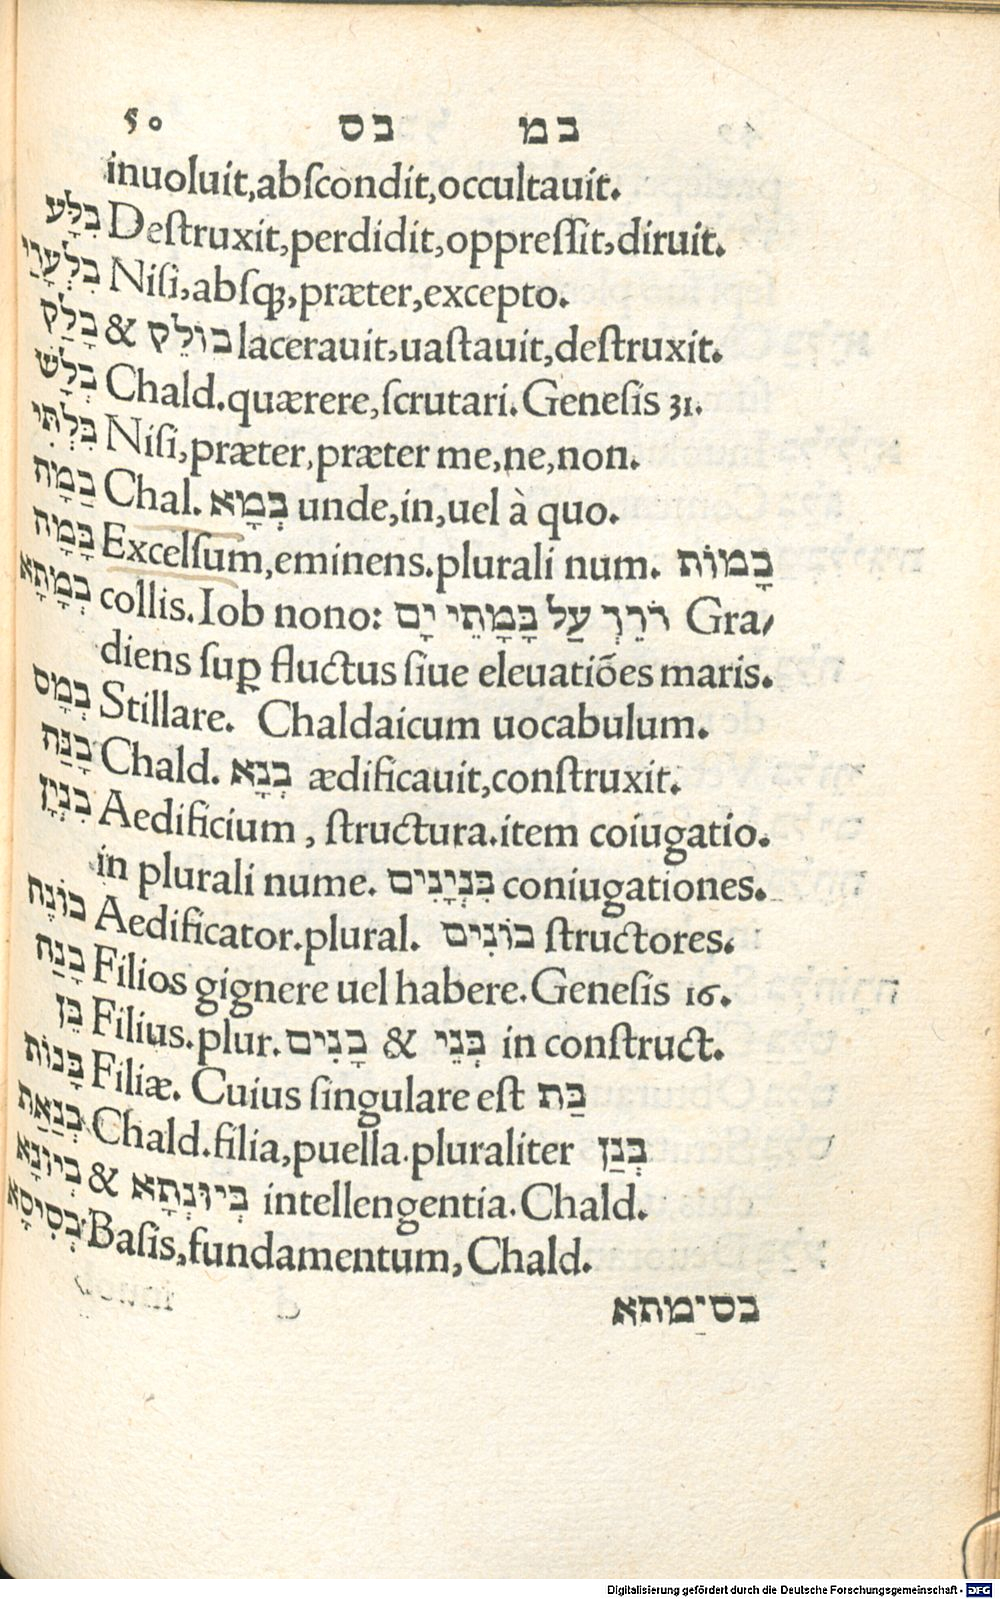 50 במ בס
inuoluit,abſcondit,occultauit.
בִּלָּע Deſtruxit,perdidit,oppreſſit,diruit.
בִּלְעָרֵי Niſi,abſqꝫ,præter,excepto.
בָּלַק & בּוֹלֵק lacerauit,uaſtauit,deſtruxit.
בְּלָשׁ Chald.quærere,ſcrutari.Geneſis 31.
בִּלְתִּי Niſi,præter,præter me,ne,non.
בַּמָּה Chal. בְּמָא unde,in,uel à quo.
בָּמָה Excelſum,eminens.plurali num. בָּמוֹת
בְּמָתָא collis.Iob nono: דֹּרֵךְ עַל בָּמָתֵי יָם Gra/
diens ſuꝑ fluctus ſiue eleuatiões maris.
בְּמָס Stillare. Chaldaicum uocabulum.
בָּנָּה Chald. בְּנָא ædificauit,conſtruxit.
בִּנְיָן Aedificium , ſtructura.item coiugatio.
in plurali nume. בִּנְיָנִים coniugationes.
בּוֹנֶה Aedificator.plural. בּוֹנִים ſtructores.
בָּנַה Filios gignere uel habere.Geneſis 16.
בֵּן Filius.plur. בָּנִים & בְּנֵי in conſtruct.
בָּנוֹת Filiæ. Cuius ſingulare eſt בַּת
בְּנַאַת Chald.filia,puella.pluraliter בְּנַן
בְּיוּנָא & בְּיוּנְתָא intellengentia.Chald.
בְּסִיסָא Baſis,fundamentum, Chald.
בסימתא
Digitalisierung gefördert durch die Deutsche Forschungsgemeinschaft - DFG